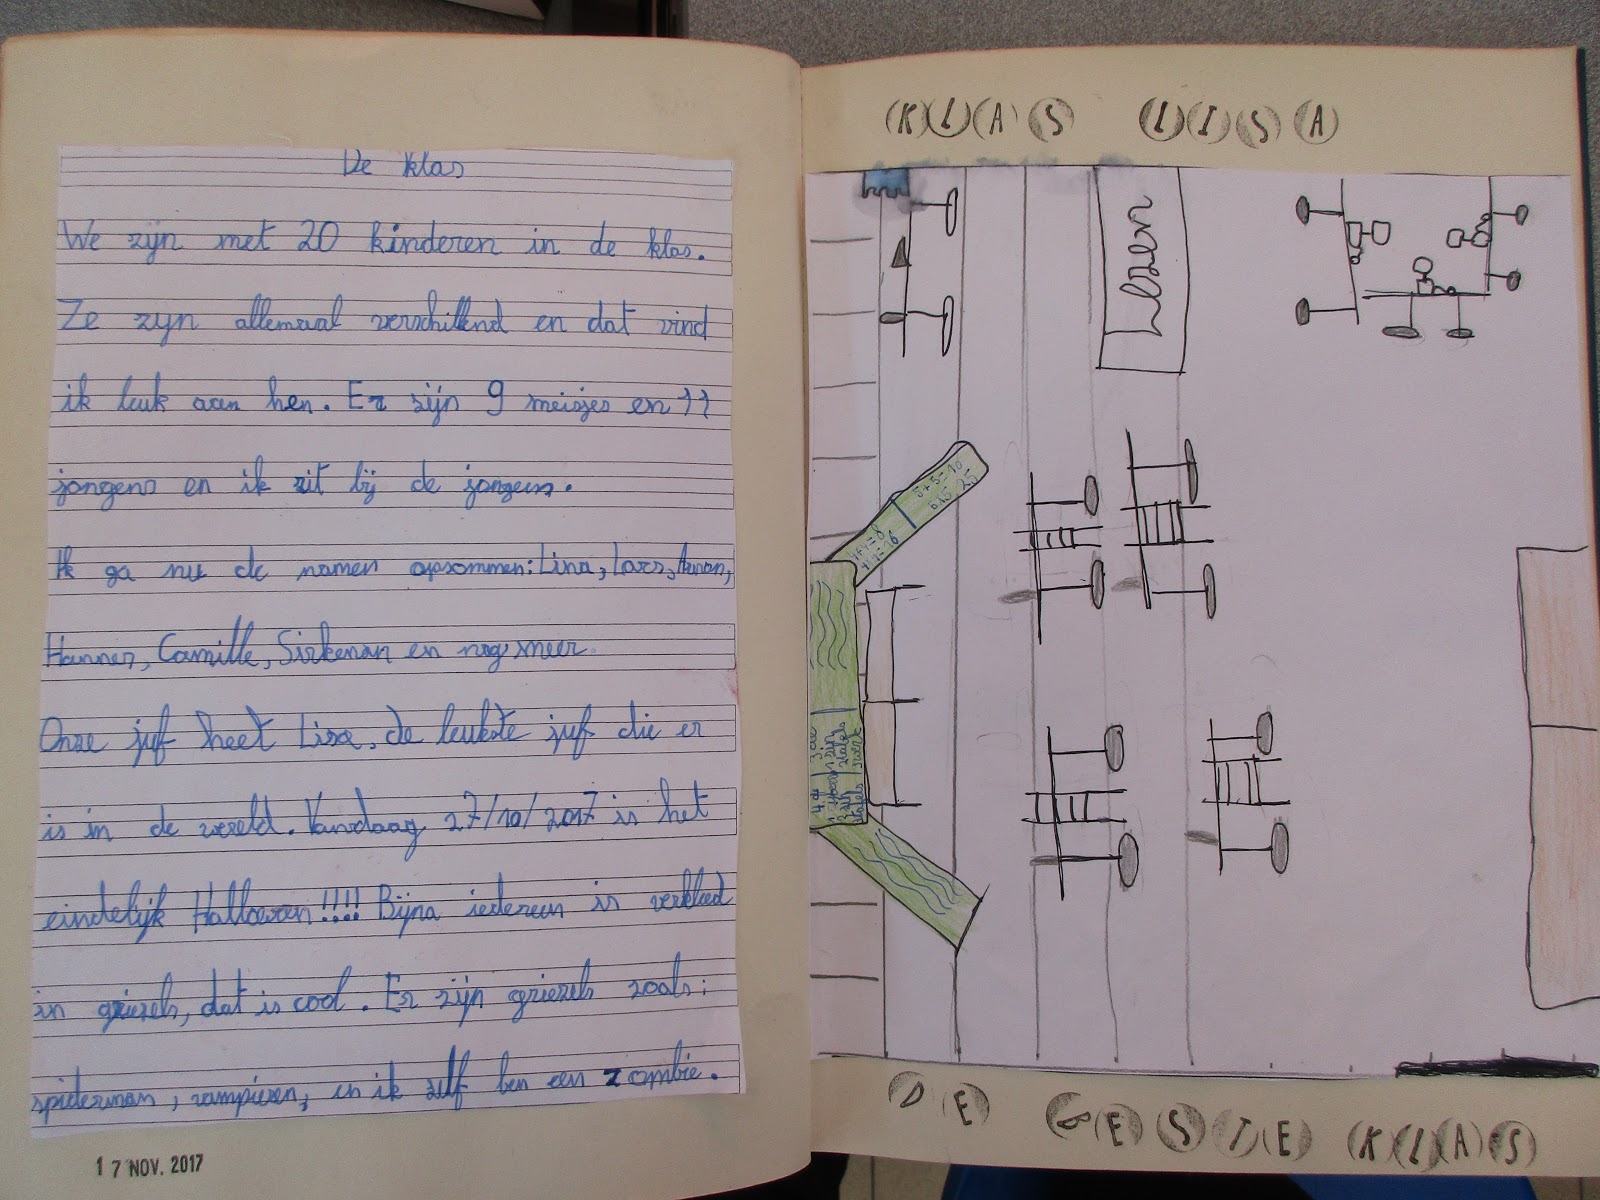 De klas
We zijn met 20 kinderen in de klas.
Ze zijn allemaal verschillend en dat vind
ik leuk aan hen. Er zijn 9 meisjes en 11
jongens en ik zit bij de jongens.
Ik ga nu de namen opsommen: Lina, Lars,
Hannes, Camille, en nog meer.
Onze juf heet Lisa, de leukste juf die er
is in de wereld. Vandaag 27/10/2017 is het
eindelijk !!!! Bijna iedereen is verkleed
in griezels, dat is cool. Er zijn griezels zoals:
spiderman, vampieren, en ik zelf ben een zombie.
17 NOV. 2017
KLAS LISA
5+5=10
5x5=25
4+4=8
4x4=16
DE BESTE KLAS